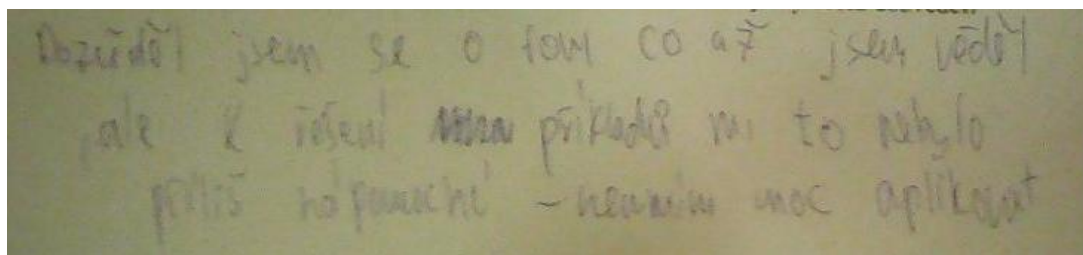 Dozvěděl jsem se o tom co až jsem věděl
, ale k řešení příkladů mi to nebylo
příliš nápomocné - neumím moc aplikovat